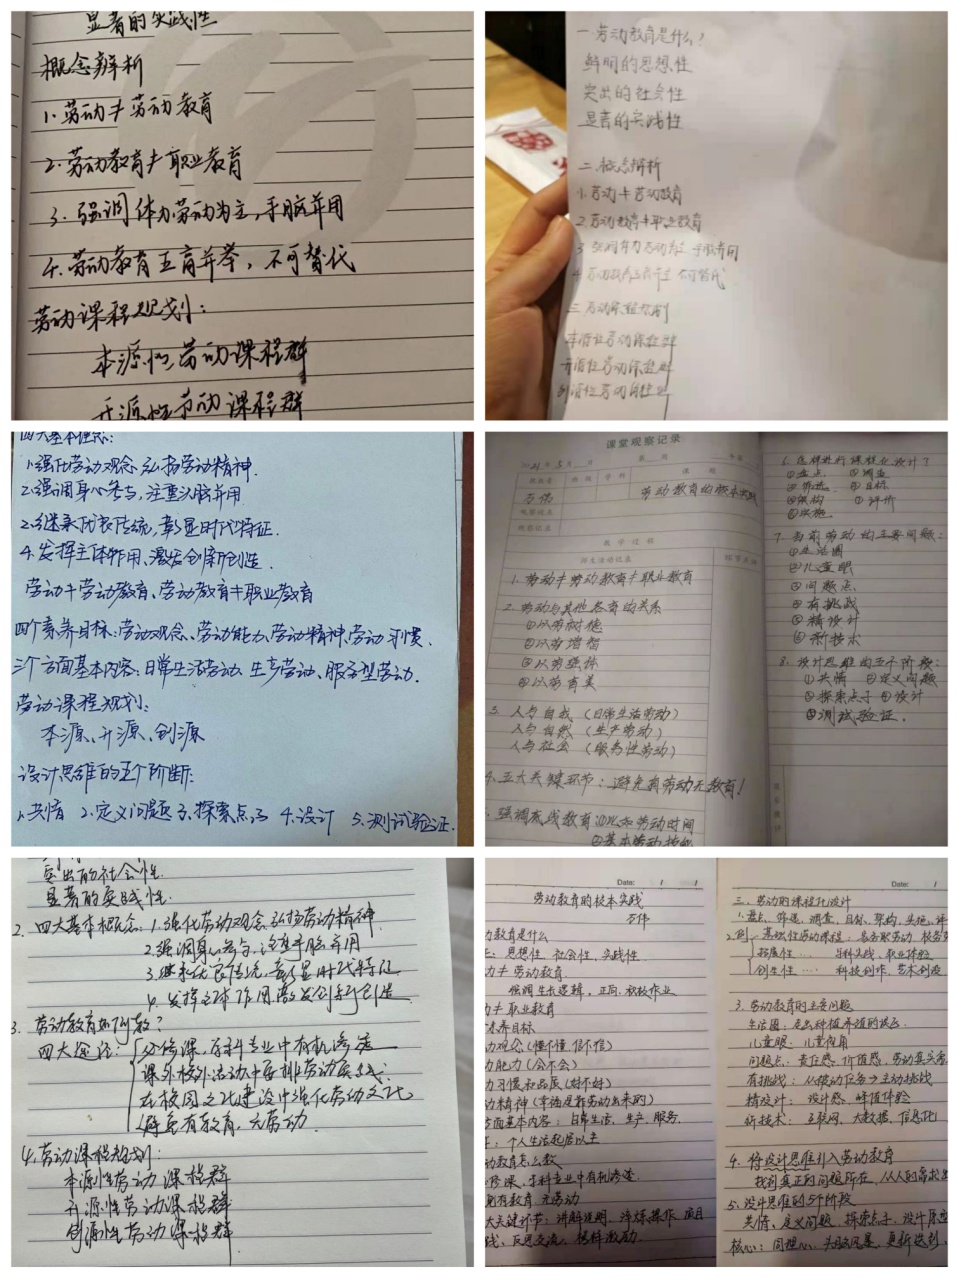 显著的实践性
概念辨析
1.劳动≠劳动教育
2.劳动教育≠职业教育
3.强调体力劳动为主,手脑并用
4.劳动教育五育并举,不可替代
劳动课程规划:
本源性劳动课程群
开源性劳动课程群
一 劳动教育是什么?
鲜明的思想性
突出的社会性
显著的实践性
二 概念辨析
1.劳动≠劳动教育
2 劳动教育≠职业教育
3 强调体力劳动为主 手脑并用
4 劳动教育五育并举 不可替代
三 劳动课程规划
本源性劳动课程群
开源性劳动课程群
创源性劳动课程群
四大基本理念:
1.强化劳动观念,弘扬劳动精神.
2.强调身心参与,注重手脑并用
2.继承优良传统,彰显时代特征.
4.发挥主体作用,激发创新创造.
劳动≠劳动教育、劳动教育≠职业教育
四个素养目标:劳动观念、劳动能力、劳动精神、劳动习惯.
三个方面基本内容:日常生活劳动、生产劳动、服务型劳动.
劳动课程规划:
本源、开源、创源
设计思维的五个阶断:
1.共情 2.定义问题 3.探索点子 4.设计 5.测试验证.
课堂观察记录
2021年5月 日
课题
万伟
劳动教育的校本实践
教学过程
师生活动记录
1.劳动≠劳动教育≠职业教育
2.劳动与其他各育的关系
①以劳树德
②以劳增智
③以劳强体
④以劳育美
3.人与自我(日常生活劳动)
人与自然(生产劳动)
人与社会(服务性劳动)
4.五大关键环节:避免有劳动无教育!
②基本劳动技能
6.怎样进行课程化设计?
①盘点 ②调查
③筛选 ④目标
⑤架构 ⑦评价
⑥实施
7.当前劳动的主要问题:
①生活圈
②儿童眼
③问题点
④有挑战
⑤精设计
⑥新技术
8.设计思维的五个阶段:
①共情 ②定义问题
③探索点子 ④设计
⑤测试验证.
突出的社会性.
显著的实践性.
2.四大基本概念:1.强化劳动观念弘扬劳动精神
2.强调身心参与,注重手脑并用
3.继承优良传统,彰显时代特征
4.发挥主体作用激发创新创造
3.劳动教育如何教?
四大途径:必修课,在学科专业中有机渗透
课外校外活动中安排劳动实践
在校园文化建设中强化劳动文化
避免有教育,无劳动.
4.劳动课程规划:
本源性劳动课程群
开源性劳动课程群
创源性劳动课程群
Date: / /
劳动教育的校本实践
万伟
动教育是什么
思想性 社会性 实践性
动≠劳动教育
强调生长逻辑,正向、积极作业
≠职业教育
素养目标
动观念(懂不懂 信不信)
动能力(会不会)
习惯和品质(好不好)
动精神(幸福是靠劳动出来的)
方面基本内容:日常生活、生产、服务.
:个人生活起居以主
动教育怎么教
修课、学科专业中有机渗透
有教育 无劳动
大关键环节:讲解说明、淬炼操作、项目
践、反思交流、榜样激励.
Date: / /
三.劳动的课程化设计
1.盘点、筛选、调查、目标、架构、实施、评
拓展性 … 学科实践、职业体验
创生性 … 科技创作、艺术创造
3.劳动教育的主要问题
生活圈:走出种植养殖的误区.
儿童眼:儿童视角
问题点:责任感、价值感、劳动真实
有挑战:从被动任务→主动挑战
精设计:设计感、峰值体验
新技术:互联网、大数据、信息化
4.将设计思维引入劳动教育
找到真正的问题所在,从人的需求
5.设计思维的5个阶段
共情、定义问题、探索点子、设计原型
核心:同理心、头脑风暴、更新迭创.